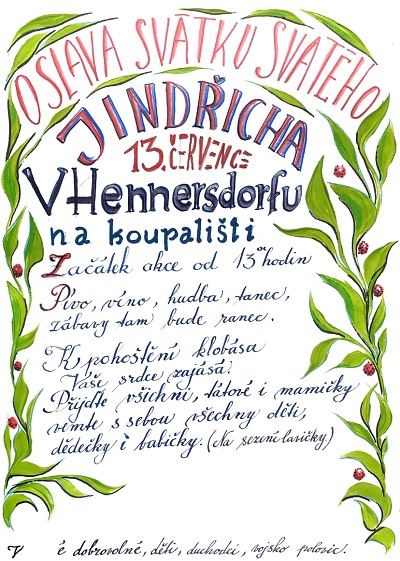 OSLAVA SVÁTKU SVATÉHO
JINDŘICHA
13. ČERVENCE
V Hennersdorfu
na koupališti
Začátek akce od 13ºº hodin
Pivo, víno, hudba, tanec,
zábavy tam bude ranec.
K pohoštění klobása
Vaše srdce zajásá.
Přijďte všichni, tátové i mamičky
vemte s sebou všechny děti,
dědečky i babičky. (Na sezení lavičky)
V é dobrovolné, děti, duchodci, vojsko polovic.